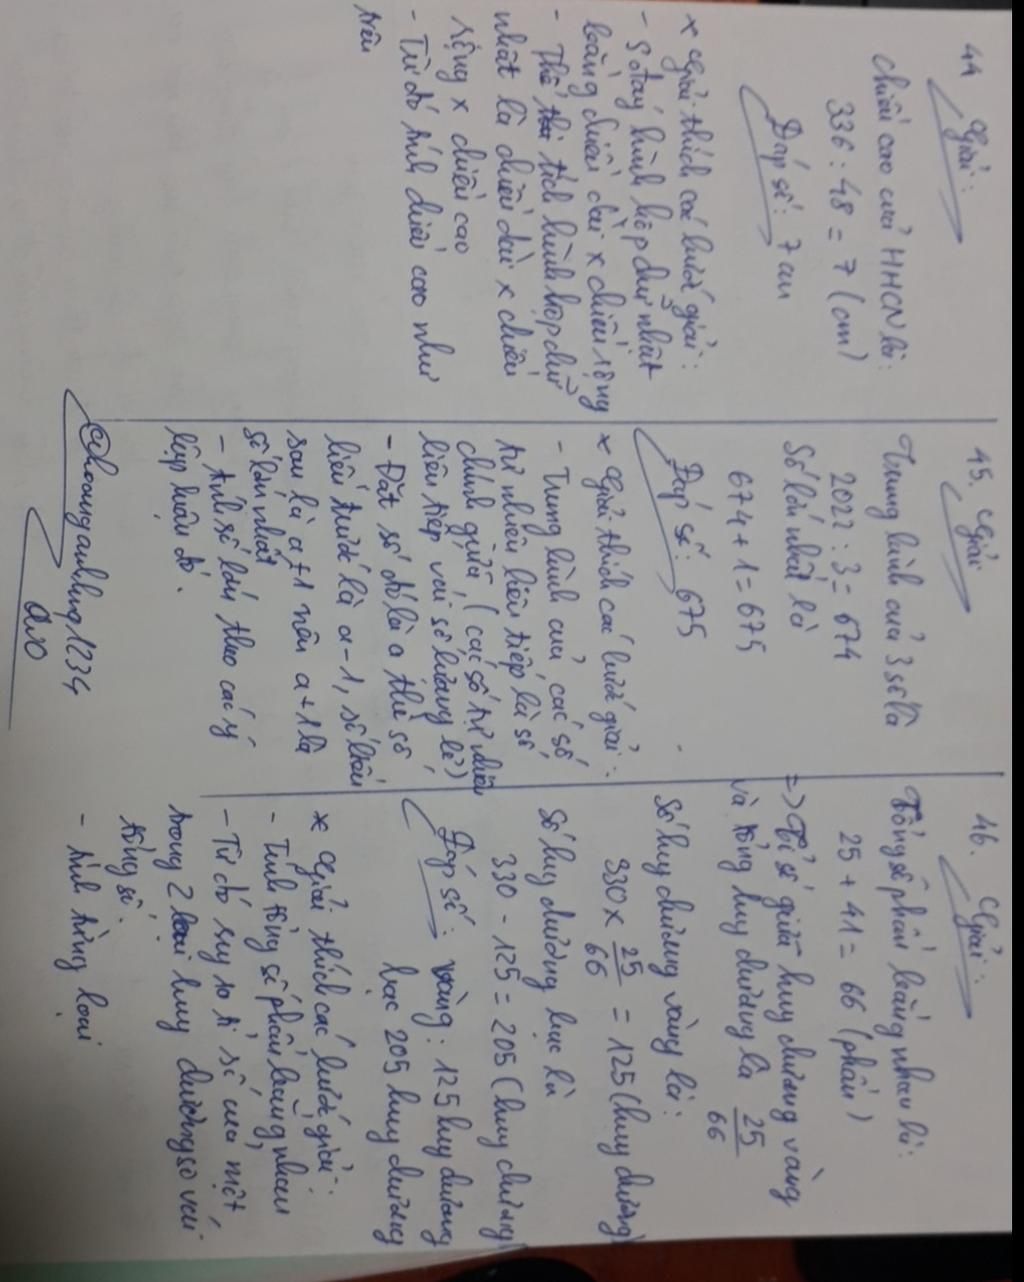 44 Giải:
Chiều cao của HHCN là:
336 : 48 = 7 (cm)
Đáp số: 7 cm
* Giải thích các bước giải:
- S đáy hình hộp chữ nhật
bằng chiều dài x chiều rộng
- Thể tích hình hộp chữ
nhật là chiều dài x chiều
rộng x chiều cao
- Từ đó tính chiều cao như
trên
45. Giải
Trung bình của 3 số là
2022 : 3 = 674
Số lớn nhất là
674 + 1 = 675
Đáp số: 675
* Giải thích các bước giải:
- Trung bình của các số
tự nhiên liên tiếp là số
chính giữa, (các số tự nhiên
liên tiếp với số lượng lẻ)
- Đặt số đó là a thì số
liền trước là a - 1, số liền
sau là a + 1 nên a + 1 là
số lớn nhất
- tính số lớn theo các ý
lập luận đó.
@hoanganhhug1234
46. Giải:
Tổng số phần bằng nhau là:
25 + 41 = 66 (phần)
=> Tỉ số giữa huy chương vàng
và tổng huy chương là 25/66
Số huy chương vàng là:
330 x 25/66 = 125 (huy chương)
Số huy chương bạc là
330 - 125 = 205 (huy chương)
Đáp số: vàng: 125 huy chương
bạc 205 huy chương
* Giải thích các bước giải:
- Tính tổng số phần bằng nhau
- Từ đó suy ra tỉ số của một
trong 2 loại huy chương so với
tổng số.
- tính từng loại